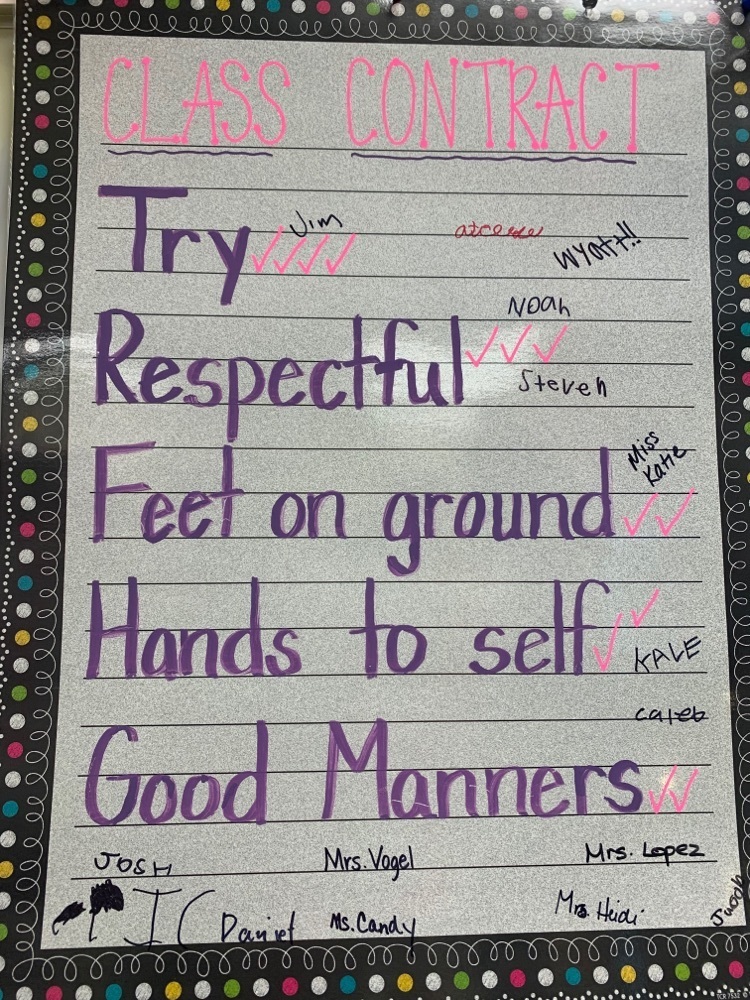 CLASS CONTRACT
Jim
Try
WYAtt!!
NOAh
Respectful
Steven
Miss
Katie
Feet on ground
Hands to self
KALE
caleb
Good Manners
JOSH Mrs. Vogel Mrs. Lopez
Daniel Ms. Candy Mrs. Heidi